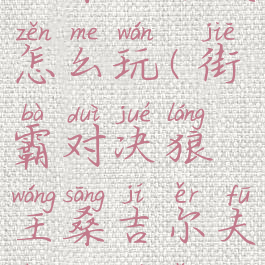 zěn me wán jiē
怎么玩(街
bà duì jué láng
霸对决狼
wáng sāng jí ěr fū
王桑吉尔夫